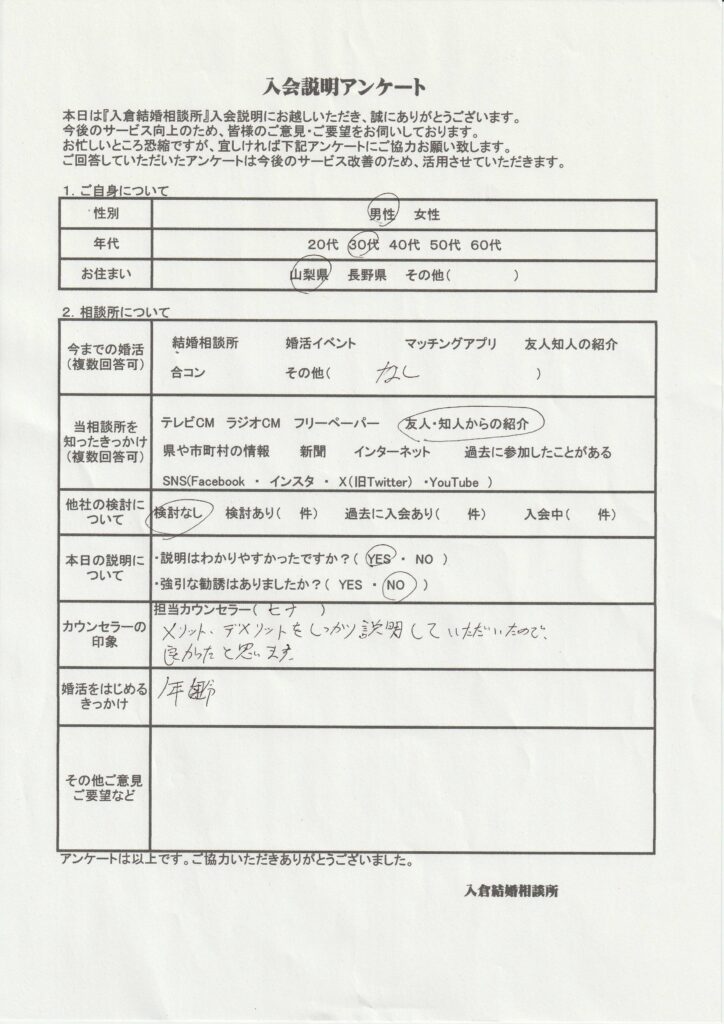 入会説明アンケート
本日は『入倉結婚相談所』入会説明にお越しいただき、誠にありがとうございます。
今後のサービス向上のため、皆様のご意見・ご要望をお伺いしております。
お忙しいところ恐縮ですが、宜しければ下記アンケートにご協力お願い致します。
ご回答していただいたアンケートは今後のサービス改善のため、活用させていただきます。
1. ご自身について
性別 男性 女性
年代 20代 30代 40代 50代 60代
お住まい 山梨県 長野県 その他( )
2. 相談所について
今までの婚活
(複数回答可)
結婚相談所 婚活イベント マッチングアプリ 友人知人の紹介
合コン その他( なし )
当相談所を
知ったきっかけ
(複数回答可)
テレビCM ラジオCM フリーペーパー 友人・知人からの紹介
県や市町村の情報 新聞 インターネット 過去に参加したことがある
SNS(Facebook ・ インスタ ・ X(旧Twitter) ・YouTube )
他社の検討に
ついて
検討なし 検討あり( 件) 過去に入会あり( 件) 入会中( 件)
本日の説明に
ついて
・説明はわかりやすかったですか?( YES ・ NO )
・強引な勧誘はありましたか?( YES ・ NO )
カウンセラーの
印象
担当カウンセラー( ヒナ )
メリット、デメリットをしっかり説明していただいたので、
良かったと思います。
婚活をはじめる
きっかけ
年齢
その他ご意見
ご要望など
アンケートは以上です。ご協力いただきありがとうございました。
入倉結婚相談所